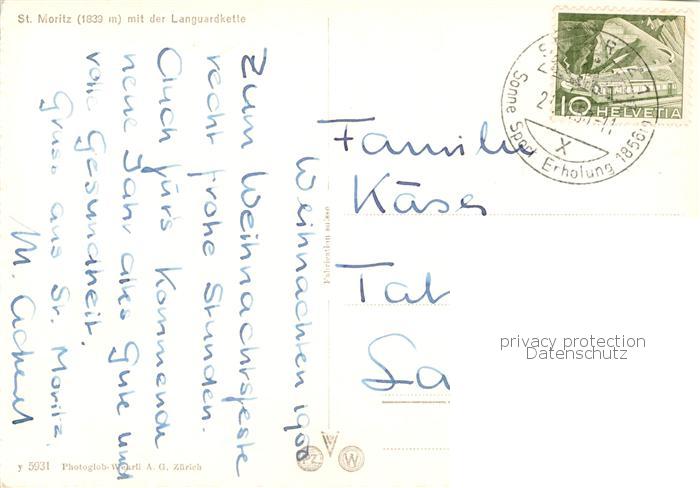 St. Moritz (1839 m) mit der Languardkette
Weihnachten 1960
Zum Weihnachtsfeste
recht frohe Stunden.
Auch für's kommende
neue Jahr alles Gute und
volle Gesundheit.
Gruss aus St. Moritz.
M.
Fabrication suisse
y 5931 Photoglob-Wehrli A. G. Zürich
PZ W
HELVETIA
10
Sonne Sport Erholung 1856m
X
Familie
Käser
Tal
La
privacy protection
Datenschutz